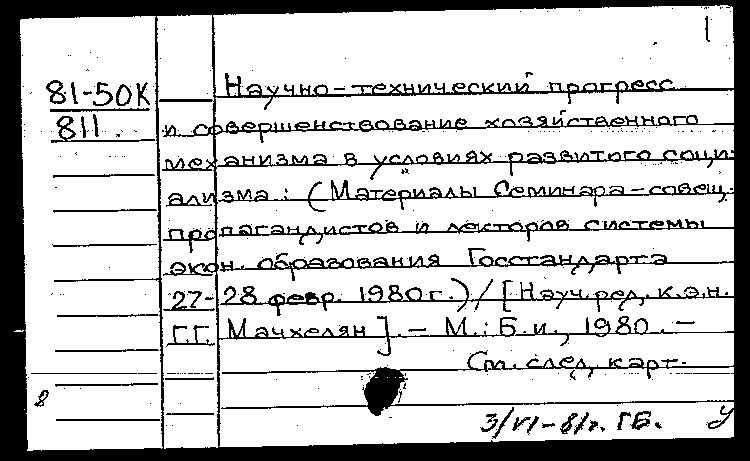 1
81-50К
811.
Научно-технический прогресс
и совершенствование хозяйственного
механизма в условиях развитого соци-
ализма: (Материалы Семинара-совещ.
пропагандистов и лекторов системы
экон. образования Госстандарта
27-28 февр. 1980 г.) / [Науч. ред. к.э.н.
Г.Г. Мачхелян]. - М.: Б.и., 1980. -
См. след. карт.
8
3/VI-81г. ГБ. У